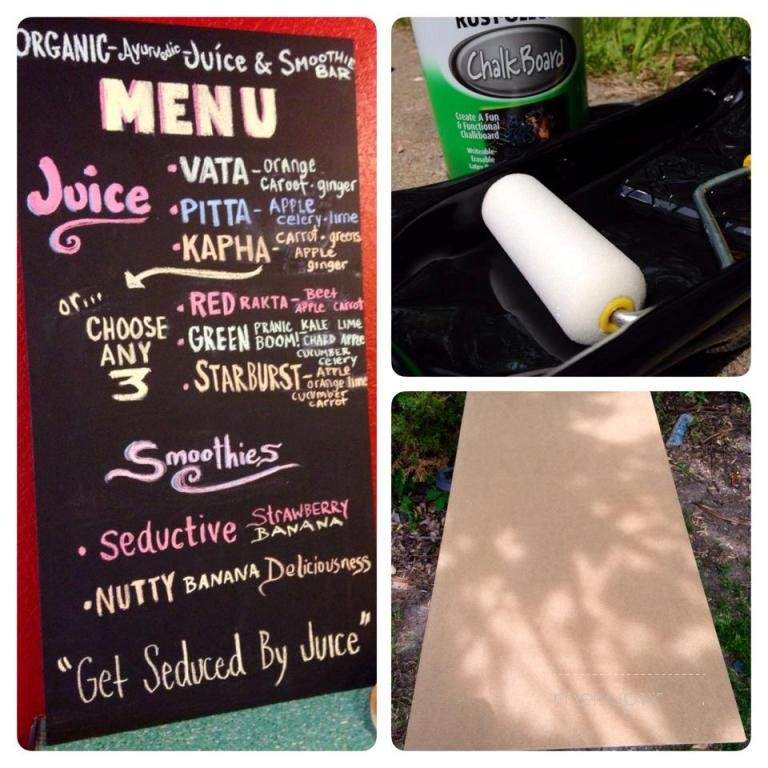 ORGANIC-Ayurvedic-Juice & SMOOTHIE BAR
MENU
Juice
• VATA - orange
caroot·ginger
• PITTA - APPLE
celery·lime
• KAPHA - CARROT·greens
APPLE
ginger
or...
CHOOSE
ANY
3
• RED RAKTA - Beet
APPLE CARROT
• GREEN PRANIC KALE LIME
BOOM! CHARD APPLE
CUCUMBER
celery
• STARBURST - APPLE
orange lime
cucumber
carrot
Smoothies
• Seductive STRAWBERRY
BANANA
• NUTTY BANANA Deliciousness
"Get Seduced By Juice"
RUST-OLEUM
ChalkBoard
Create A Fun
& Functional
Chalkboard
Writeable-
Erasable